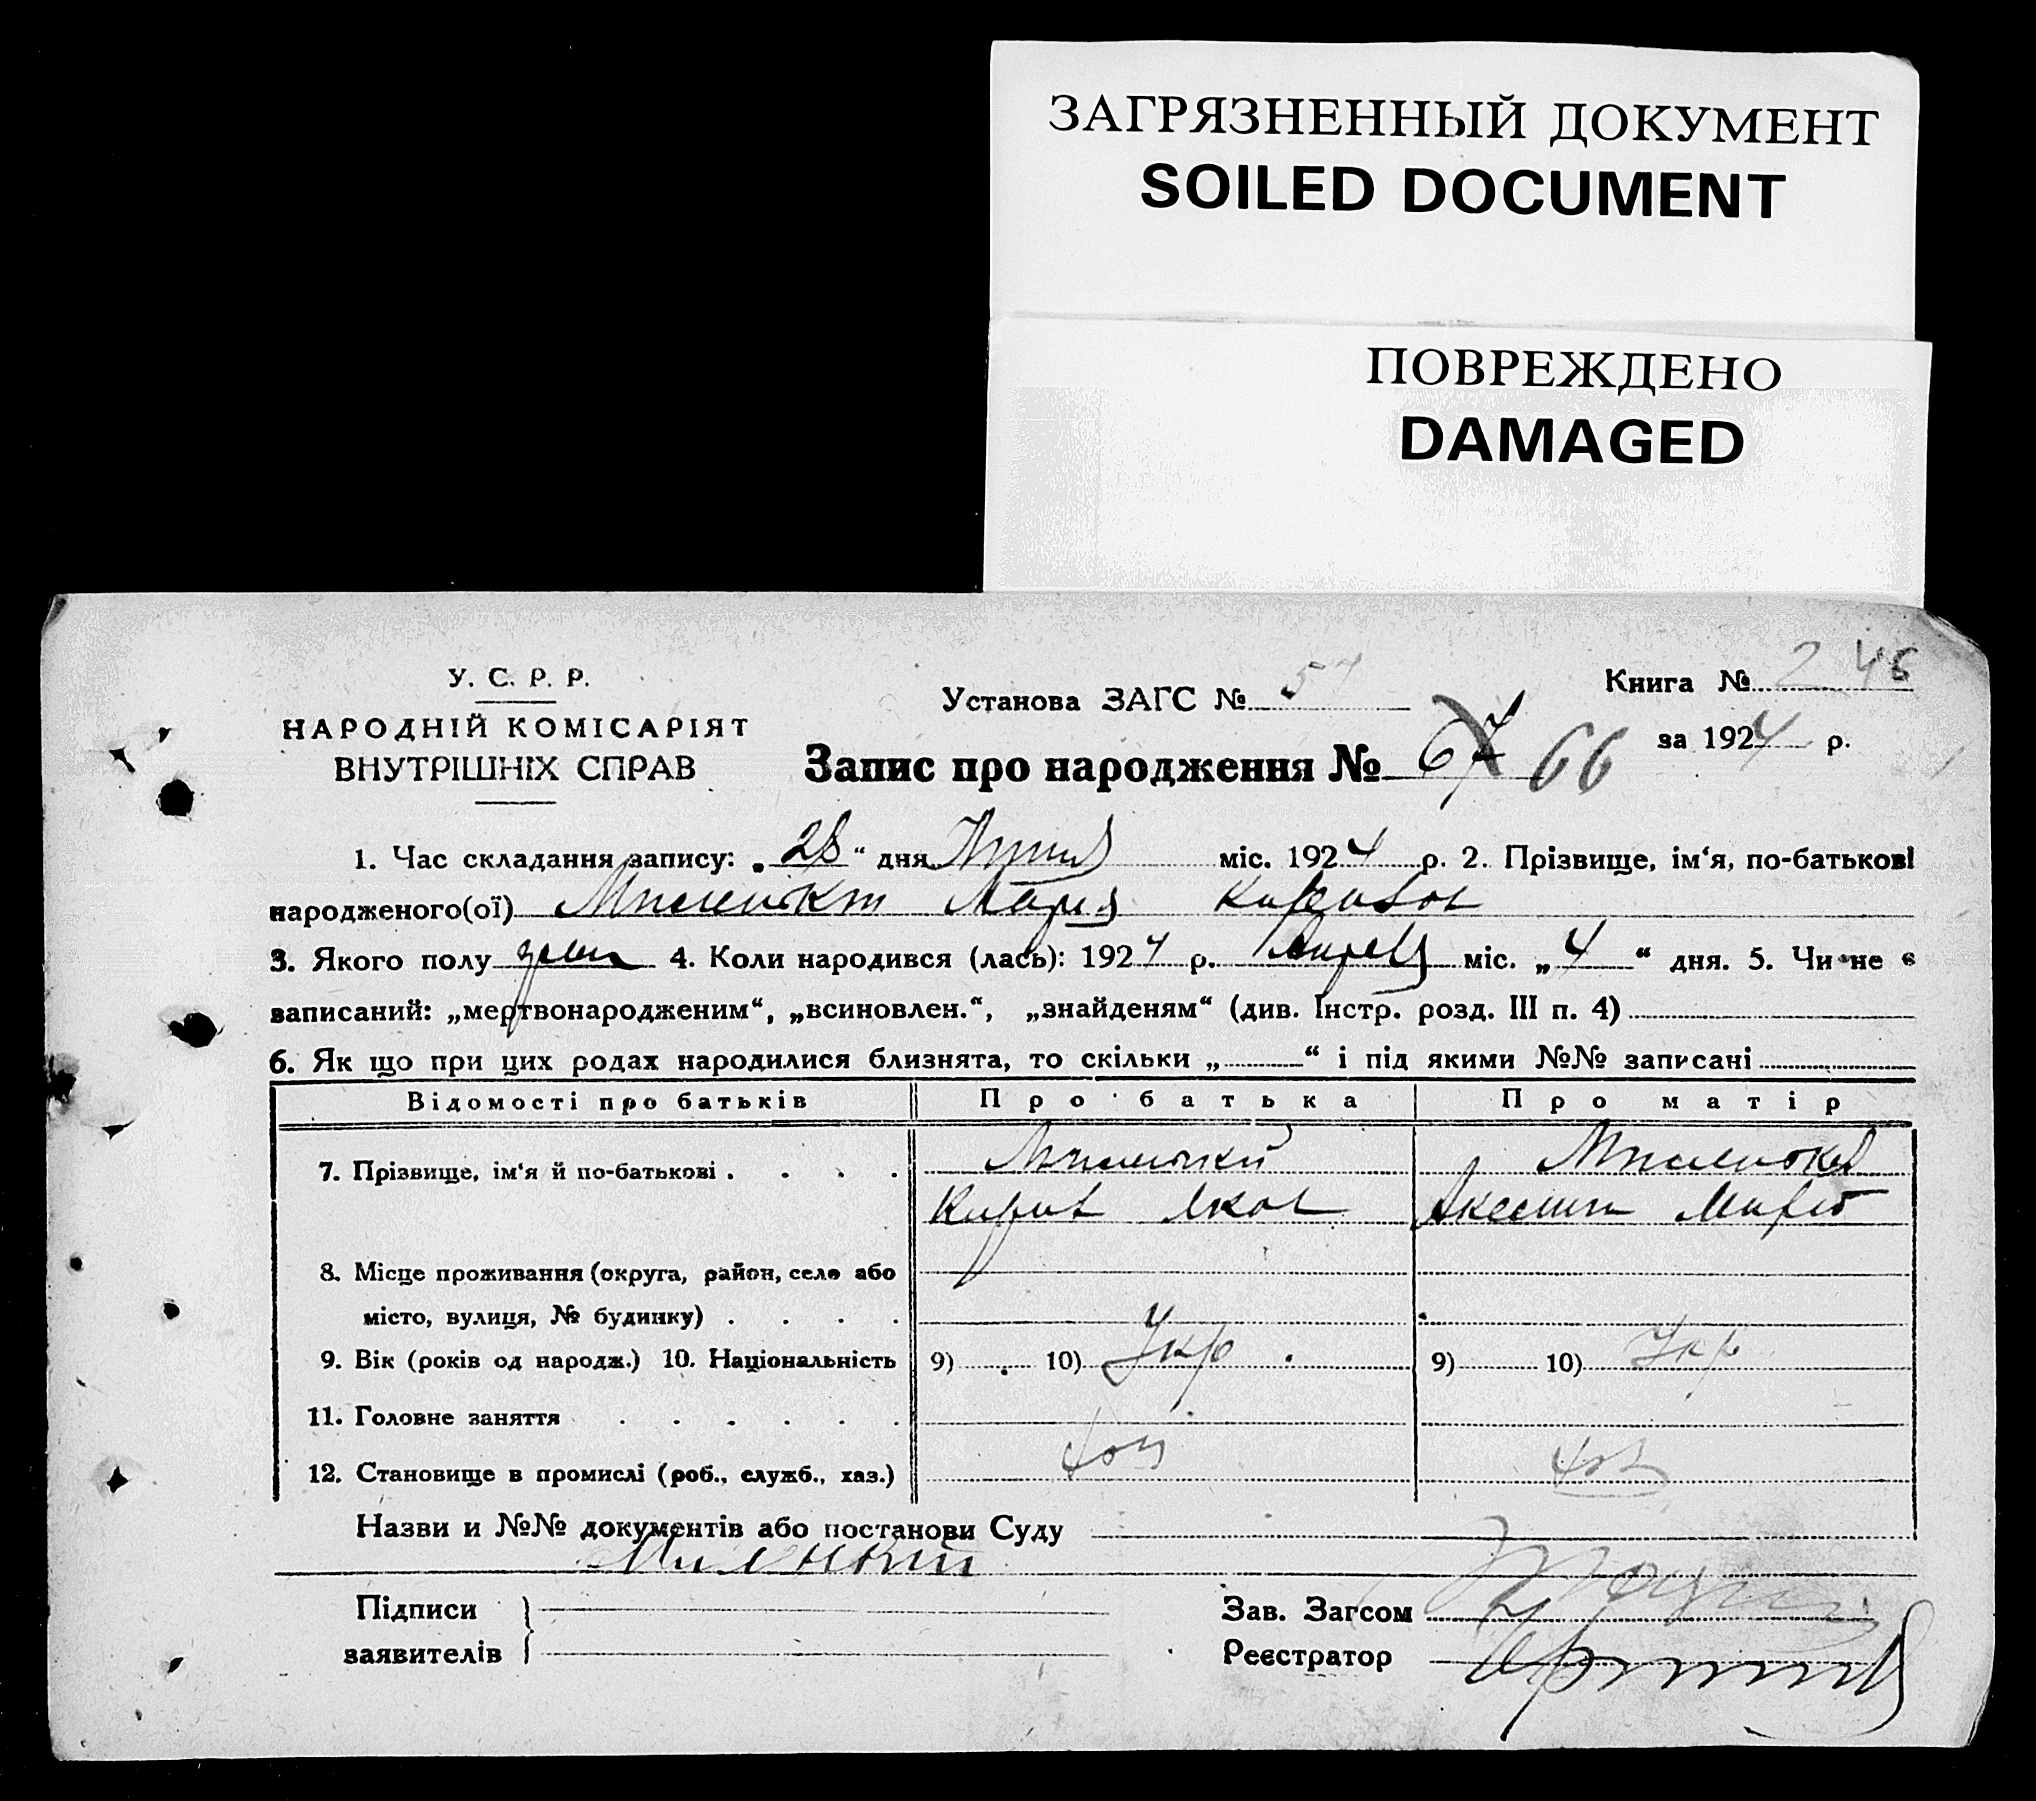 ЗАГРЯЗНЕННЫЙ ДОКУМЕНТ
SOILED DOCUMENT
ПОВРЕЖДЕНО
DAMAGED
У. С. Р. Р.
НАРОДНІЙ КОМІСАРІЯТ
ВНУТРІШНІХ СПРАВ
Установа ЗАГС № 57
Книга № 2 46
за 1924 р.
Запис про народження № 67 66
1. Час складання запису: „28“ дня міс. 1924 р. 2. Прізвище, ім‘я, по-батькові
народженого(ої) Мария
3. Якого полу жен 4. Коли народився (лась): 1924 р. міс. „4“ дня. 5. Чи не є
записаний: „мертвонародженим“, „всиновлен.“, „знайденям“ (див. Інстр. розд. III п. 4)
6. Як що при цих родах народилися близнята, то скільки „ “ і під якими №№ записані
Відомості про батьків Про батька Про матір
7. Прізвище, ім‘я й по-батькові . . . .
8. Місце проживання (округа, район, село або
місто, вулиця, № будинку) . . . .
9. Вік (років од народж.) 10. Національність 9) 10) Укр 9) 10) Укр
11. Головне заняття . . . . . .
12. Становище в промислі (роб., служб., хаз.)
Назви и №№ документів або постанови Суду
Підписи
заявителів
Зав. Загсом
Реєстратор